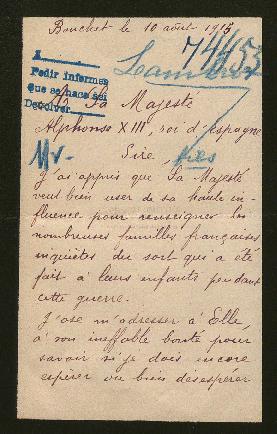 Bouchet le 10 août 1915
74453
A
Pedir informes
Que se hace sei
Devolver
A Sa Majesté
Alphonse XIII, roi d'Espagne
Sire,
J'ai appris que Sa Majesté
veut bien user de sa haute in-
fluence pour renseigner les
nombreuses familles françaises
inquiètes du sort qui a été
fait à leurs enfants pendant
cette guerre.
J'ose m'adresser à Elle,
à son ineffable bonté pour
savoir si je dois encore
espérer ou bien désespérer